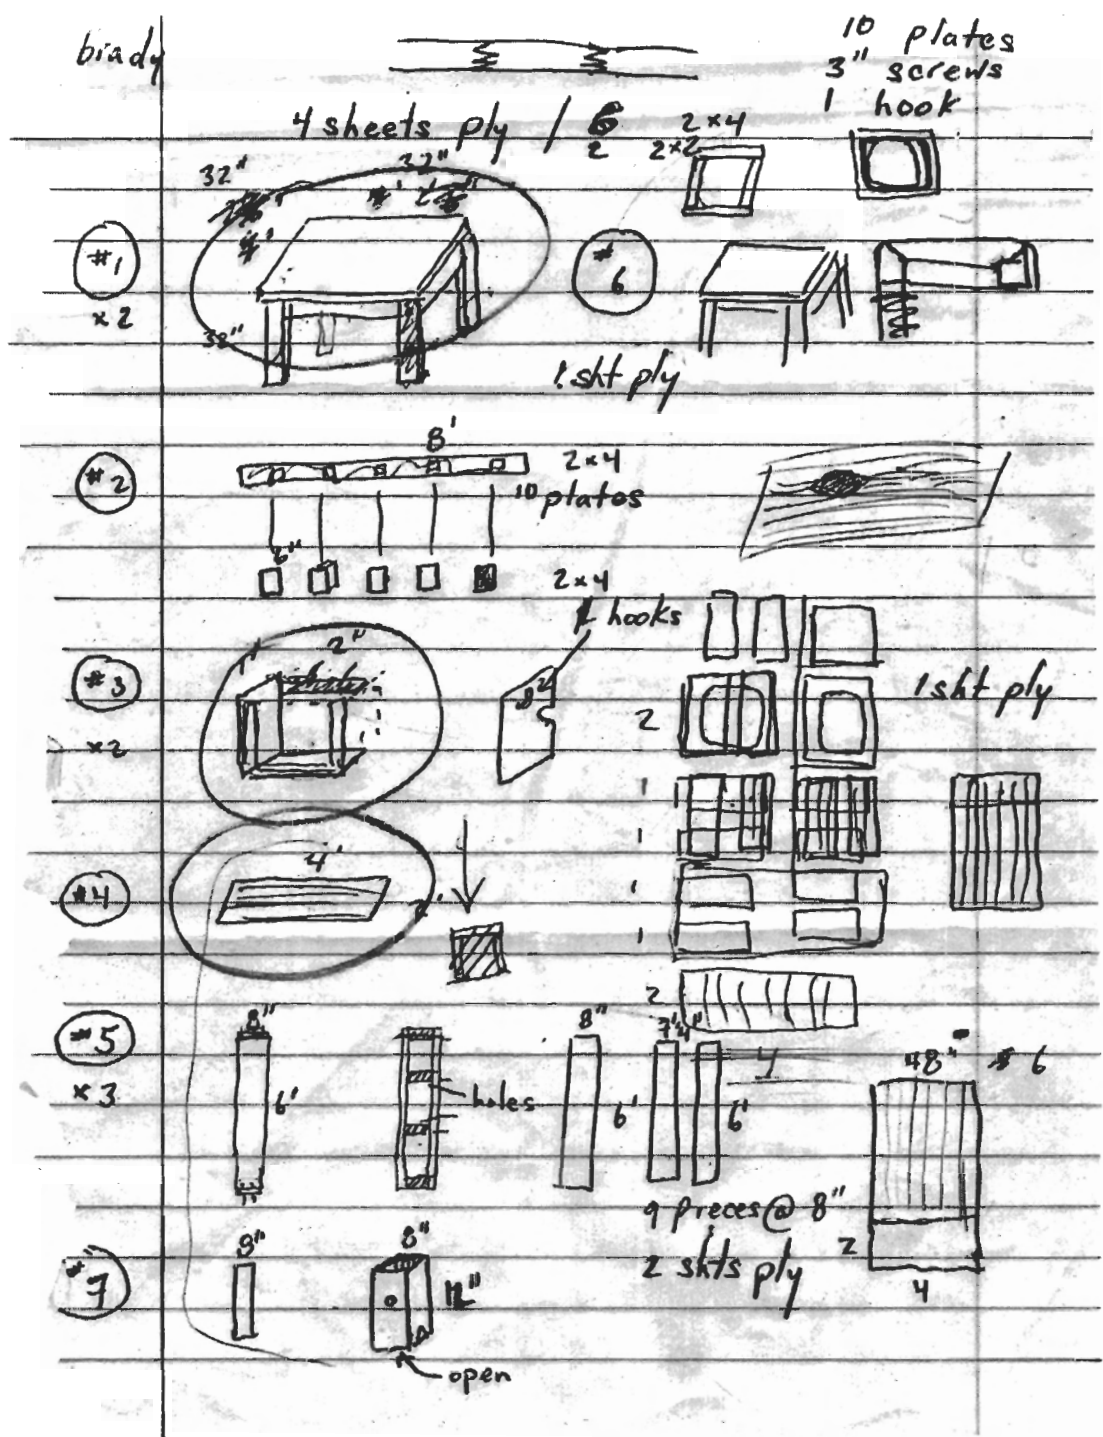 brady
10 plates
3" screws
1 hook
4 sheets ply / 6
2
2x4
2x2
32"
32"
#1
x2
38"
#6
1 sht ply
#2
8'
2x4
10 plates
6"
2x4
hooks
#3
x2
2"
8"
2
1 sht ply
1
1
1
1
2
#4
4'
2'
#5
x3
8"
6'
holes
8"
6'
7 1/4"
6'
4
48" #6
9 pieces @ 8"
2 shts ply
2
4
#7
8"
8"
12"
open